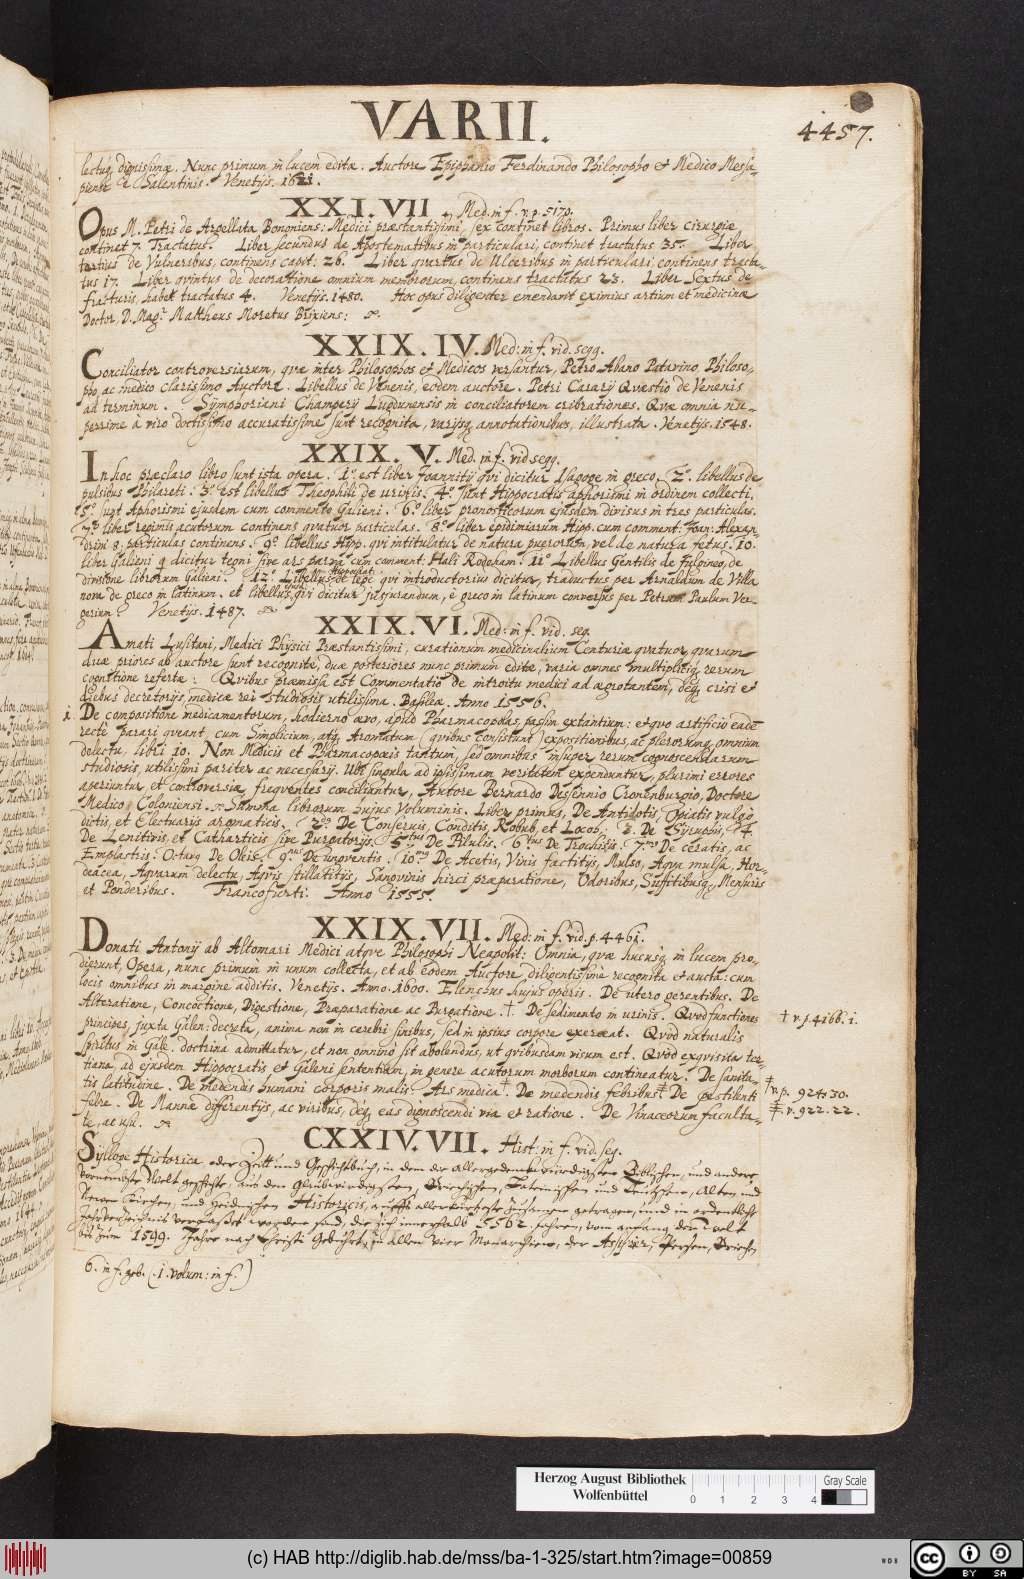 VARII.
4457.
lectuq́; dignissimæ. Nunc primum in lucem editæ. Auctore Epiphanio Ferdinando Philosopho et Medico Messa-
piense è Salentinis. Venetijs. 1621.
XXI.VII. Med. in f. v.p. 5170.
Opus M. Petri de Argellata Bononiens: Medici præstantissimi, sex continet libros. Primus liber cirurgiæ
continet 7. Tractatus. Liber secundus de Apostematibus in particulari, continet tractatus 35. Liber
tertius de Vulneribus, continens capit. 26. Liber quartus de Ulceribus in particulari, continens tracta-
tus 17. Liber qvintus de decoratione omnium membrorum, continens tractatus 23. Liber Sextus de
fracturis, habet tractatus 4. Venetijs. 1480. Hoc opus diligenter emendavit eximius artium et medicinæ
Doctor D. Mag.r Mattheus Moretus Brixiens:
XXIX.IV. Med: in f. vid. seqq.
Conciliator controversiarum, quæ inter Philosophos et Medicos versantur, Petro Abano Patavino Philoso-
pho ac medico clarissimo Auctore. Libellus de Venenis, eodem auctore. Petri Carary Qvæstio de Venenis
ad terminum. Symphoriani Champerij Lugdunensis in conciliatorem cribrationes. Qvæ omnia nu-
perrime à viro doctissimo accuratissime sunt recognita, varijsq; annotationibus, illustrata. Venetijs. 1548.
XXIX.V. Med. in f. vid seqq.
In hoc præclaro libro sunt ista opera. 1.º est liber Joannitij qvi dicitur Isagoge in greco. 2.º libellus de
pulsibus Philareti. 3.º est libellus Theophili de urinis. 4.º sunt Hippocratis aphorismi in ordinem collecti.
5.º sunt Aphorismi ejusdem cum commento Galieni. 6.º liber pronosticorum ejusdem divisus in tres particulas.
7.º liber regimis acutorum continens qvatuor particulas. 8.º liber epidimiarum Hipp. cum comment: Joan: Alexan-
drini 8. particulas continens. 9.º libellus Hipp. qvi intitulatur de natura puerorum, vel de natura fetus. 10.
liber Galieni q dicitur tegni sive ars parva cum comment: Hali Rodoham. 11.º Libellus Gentilis de fulgineo, de
divisione librorum Galieni. 12.º Libellus Hippocrat: de lege qvi introductorius dicitur, traductus per Arnaldum de Villa
nova de greco in latinum. et libellus, qvi dicitur jusjurandum, è greco in latinum conversus per Petrum Paulum Ver-
gerium. Venetijs. 1487.
XXIX.VI. Med: in f. vid. seq.
Amati Lusitani, Medici Physici Præstantissimi, curationum medicinalium Centuriæ qvatuor, qvarum
duæ priores ab auctore sunt recognitæ, duæ posteriores nunc primum editæ, varia omnes multipliciq; rerum
cognitione refertæ: Qvibus præmissa est Commentatio de introitu medici ad ægrotantem, deq; crisi et
diebus decretorijs, medicæ rei studiosis utilissima. Basileæ. Anno 1556.
1. De compositione medicamentorum, hodierno ævo, apud Pharmacopolas, passim extantium: et qvo artificio eadē
rectè parari qveant, cum Simplicium, atq; Aromatum (qvibus constitunt) expositionibus, ac plerorumq; omnium
delectu, libri 10. Non Medicis et Pharmacopæis tantum, sed omnibus insuper rerum cognoscendarum
studiosis, utilissimi pariter ac necessarij. Ubi singula ad ipsissimam veritatem expenduntur, plurimi errores
aperiuntur et controversiæ, freqventes conciliantur, Autore Bernardo Dessennio Cronenburgio, Doctore
Medico, Coloniensi. Summa librorum hujus Voluminis. Liber primus, De Antidotis, Opiatis vulgo
dictis, et Electuarijs aromaticis. 2.us De Conservis, Conditis, Robub, et Looch. 3. De Syrupis, 4.
De Lenitivis, et Catharticis sive Purgatorijs. 5.tus De Pilulis. 6.tus De Trochiscis. 7.mus De Ceratis, ac
Emplastris: Octavus De Oleis. 9.nus De unguentis. 10.mus De Acetis, Vinis factitijs, Mulso, Aqva mulsa, Hor-
deacea, Aqvarum delectu, Aqvis stillatitijs, Sanqvinis hirci præparatione, Odoribus, Suffitibusq; Mensuris
et Ponderibus. Francofurti. Anno 1555.
XXIX.VII. Med: in f. vid. p. 4461.
Donati Antonij ab Altomari Medici atqve Philosophi Neapolit: Omnia, qvæ hucusq; in lucem pro-
dierunt, Opera, nunc primum in unum collecta, et ab eodem Auctore diligentissimè recognita et aucta: cum
locis omnibus in margine additis. Venetijs. Anno. 1600. Elenchus hujus operis. De utero gerentibus. De
Alteratione, Concoctione, Digestione, Præparatione ac Purgatione. † De sedimento in urinis. Qvod functiones
principes, juxta Galen: decreta, anima non in cerebri sinibus, sed in ipsius corpore exerceat. Qvod naturalis
spiritus in Gale. doctrina admittatur, et non omninò sit abolendus, ut qvibusdam visum est. Qvòd exqvisita ter-
tiana, ad ejusdem Hippocratis et Galeni sententiam, in genere acutorum morborum contineatur. De sanita-
tis latitudine. De medendis humani corporis malis: Ars medica. ‡ De medendis febribus. De pestilenti
febre. De Mannæ differentijs, ac viribus, deq; eas dignoscendi via et ratione. De Vinaceorum faculta-
te, ac usu.
† v.p. 4166. 1.
‡ v.p. 924. 30.
v. 922. 22.
CXXIV.VII. Hist: in f. vid. seq.
Sylloge Historica oder Zeitt und Geschichtbuch, in dem die allergedenckwürdigsten Biblischen, und andere
vornembste Welt geschichte, aus den glaubwirdigsten, Griechischen, Lateinischen und Teutschen, Alten, und
Newen Kirchen, und Heidnischen Historicis, auffs allerkürtzeste zusammen getragen, und in ordentliche
Jahrverzeichnis verfasset worden sind, die sich innerhalb 5562 Jahren, vom anfang der welt
bis zum 1599. Jahre nach Christi Gebuhrt, in allen vier Monarchien, der Assyrier, Persen, Griechen
6. in f. geb. (.1. volum: in f.)
Herzog August Bibliothek
Wolfenbüttel
0 1 2 3 4
Gray Scale
(c) HAB http://diglib.hab.de/mss/ba-1-325/start.htm?image=00859
WDB
CC BY SA